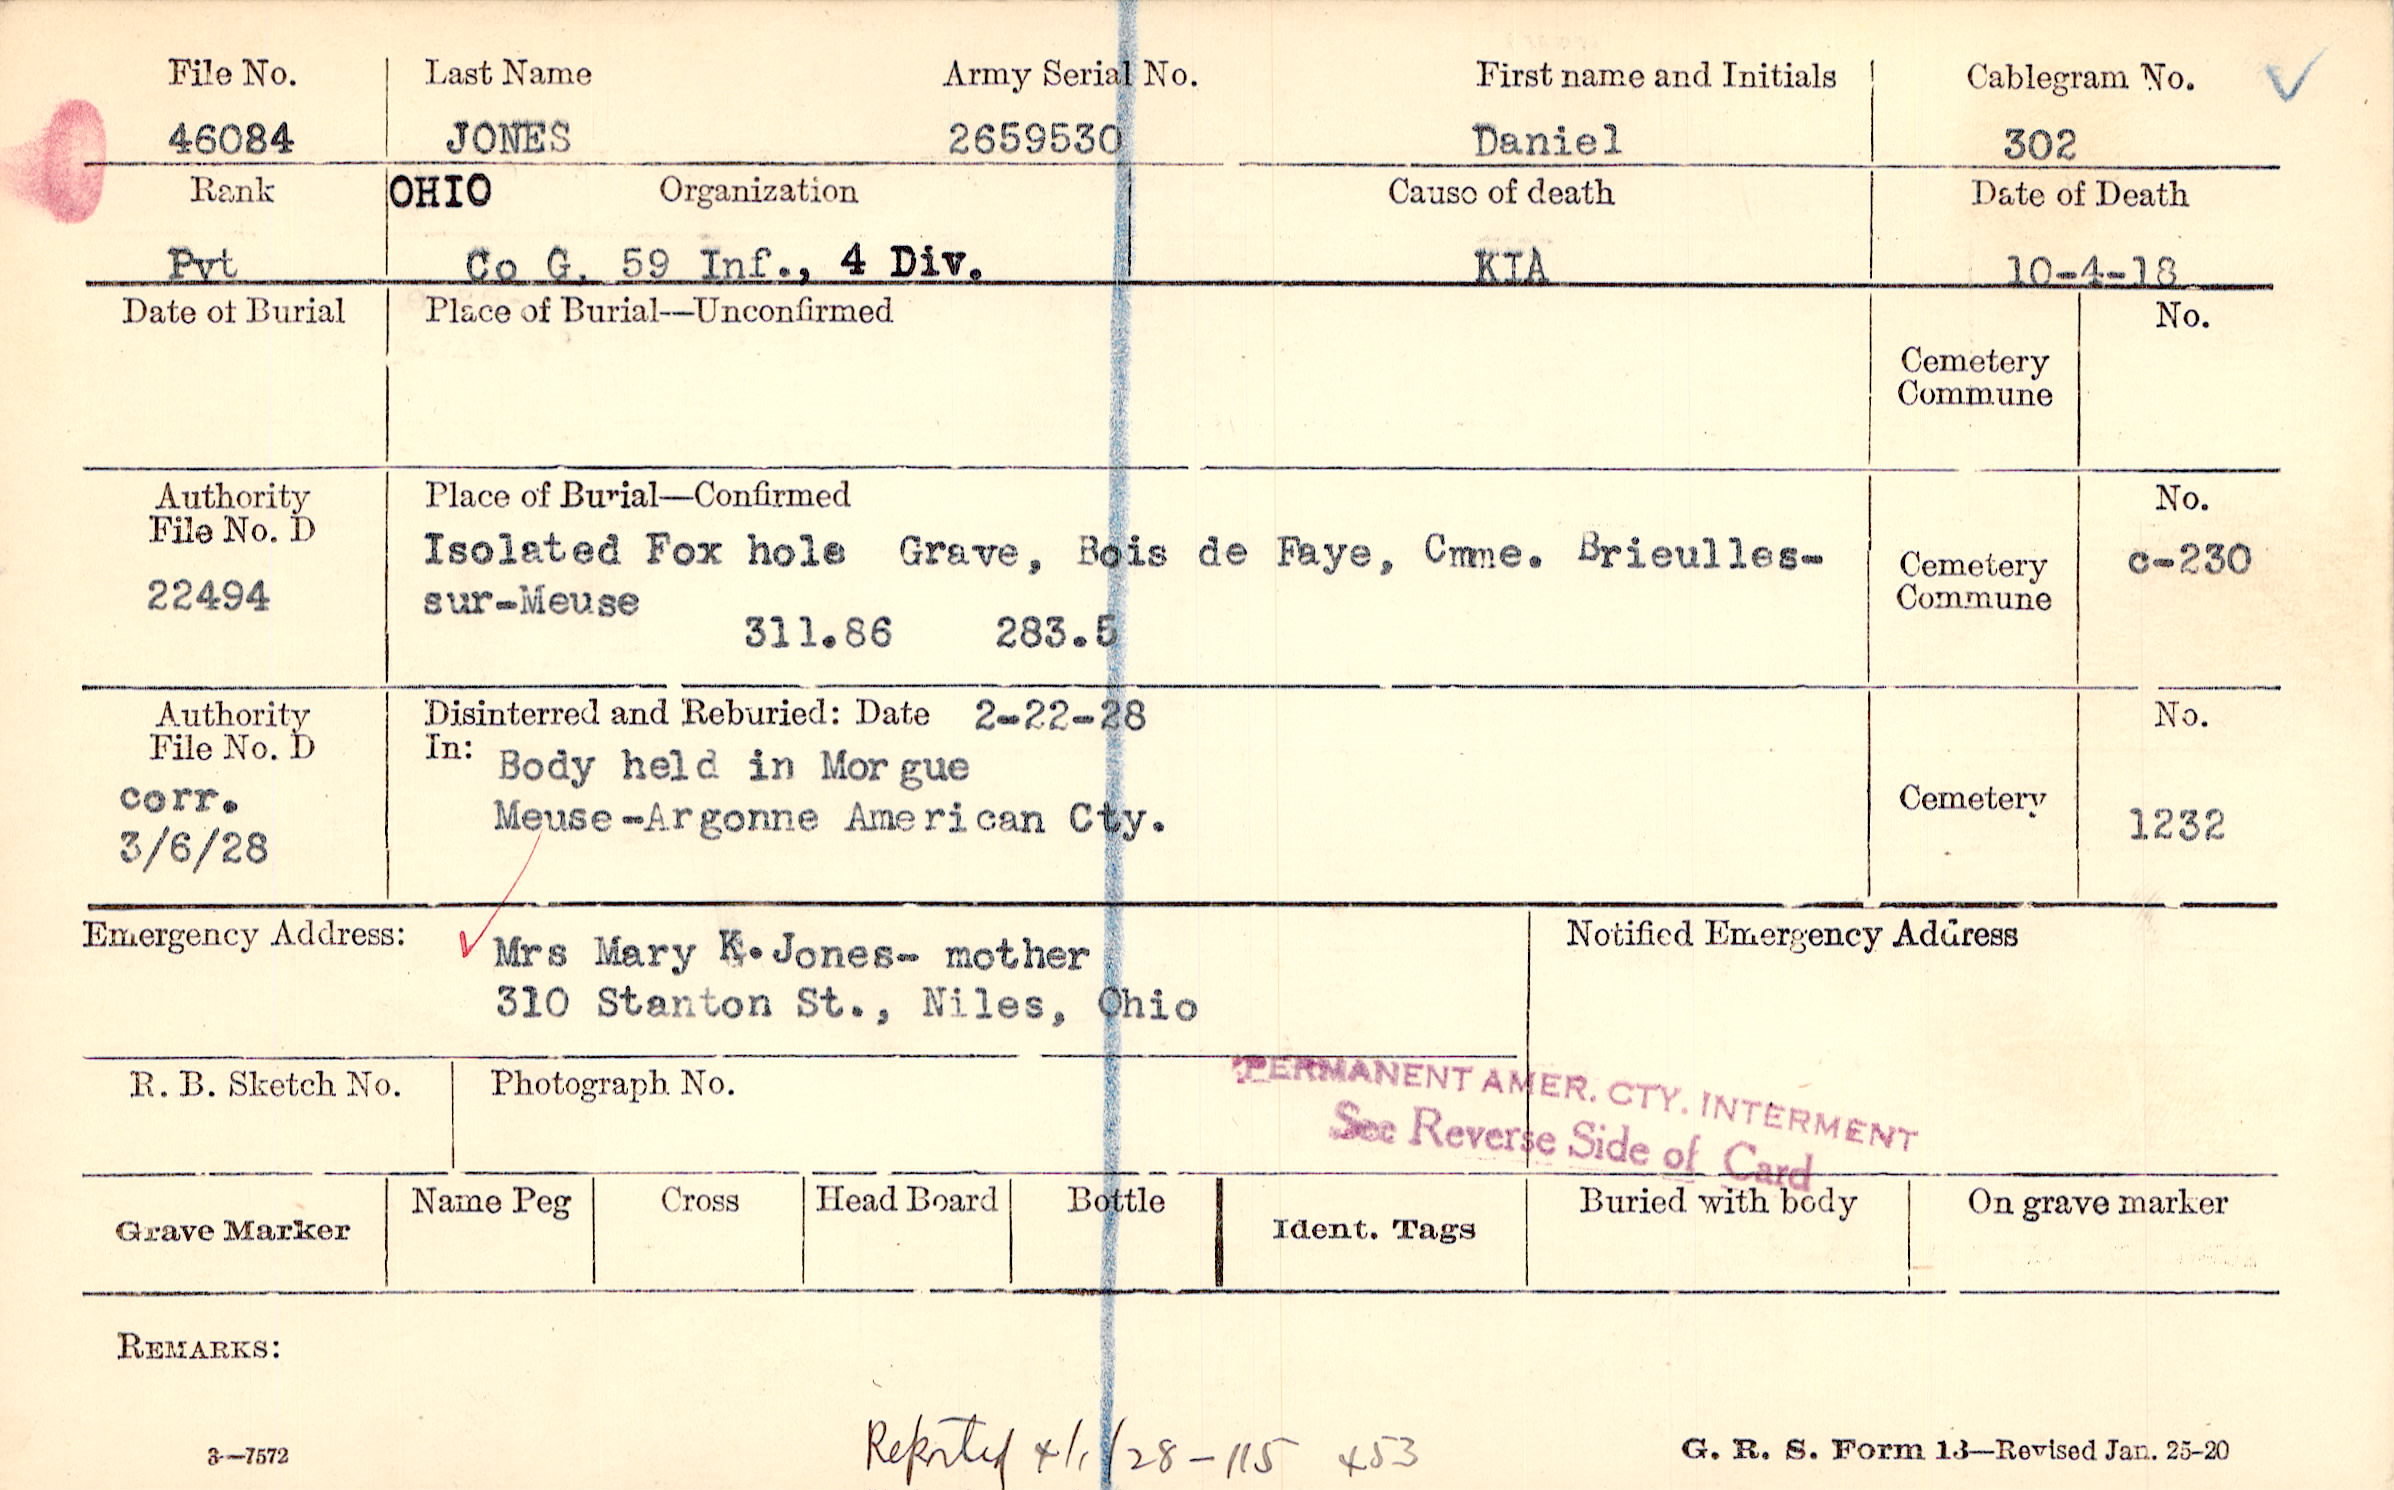 File No. Last Name Army Serial No. First name and Initials Cablegram No.
46084 JONES 2659530 Daniel 302
Rank OHIO Organization Cause of death Date of Death
Pvt Co G. 59 Inf., 4 Div. KIA 10-4-18
Date of Burial Place of Burial—Unconfirmed No.
Cemetery
Commune
Authority Place of Burial—Confirmed No.
File No. D
Isolated Fox hole Grave, Bois de Faye, Cmne. Brieulles-
Cemetery c-230
22494 sur-Meuse Commune
311.86 283.5
Authority Disinterred and Reburied: Date 2-22-28 No.
File No. D In: Body held in Morgue
corr. Meuse-Argonne American Cty. Cemetery 1232
3/6/28
Emergency Address: Mrs Mary K. Jones- mother Notified Emergency Address
310 Stanton St., Niles, Ohio
PERMANENT AMER. CTY. INTERMENT
See Reverse Side of Card
R. B. Sketch No. Photograph No.
Grave Marker Name Peg Cross Head Board Bottle Ident. Tags Buried with body On grave marker
REMARKS:
3—7572 Reported 4/1/28-115 453 G. R. S. Form 13—Revised Jan. 25-20